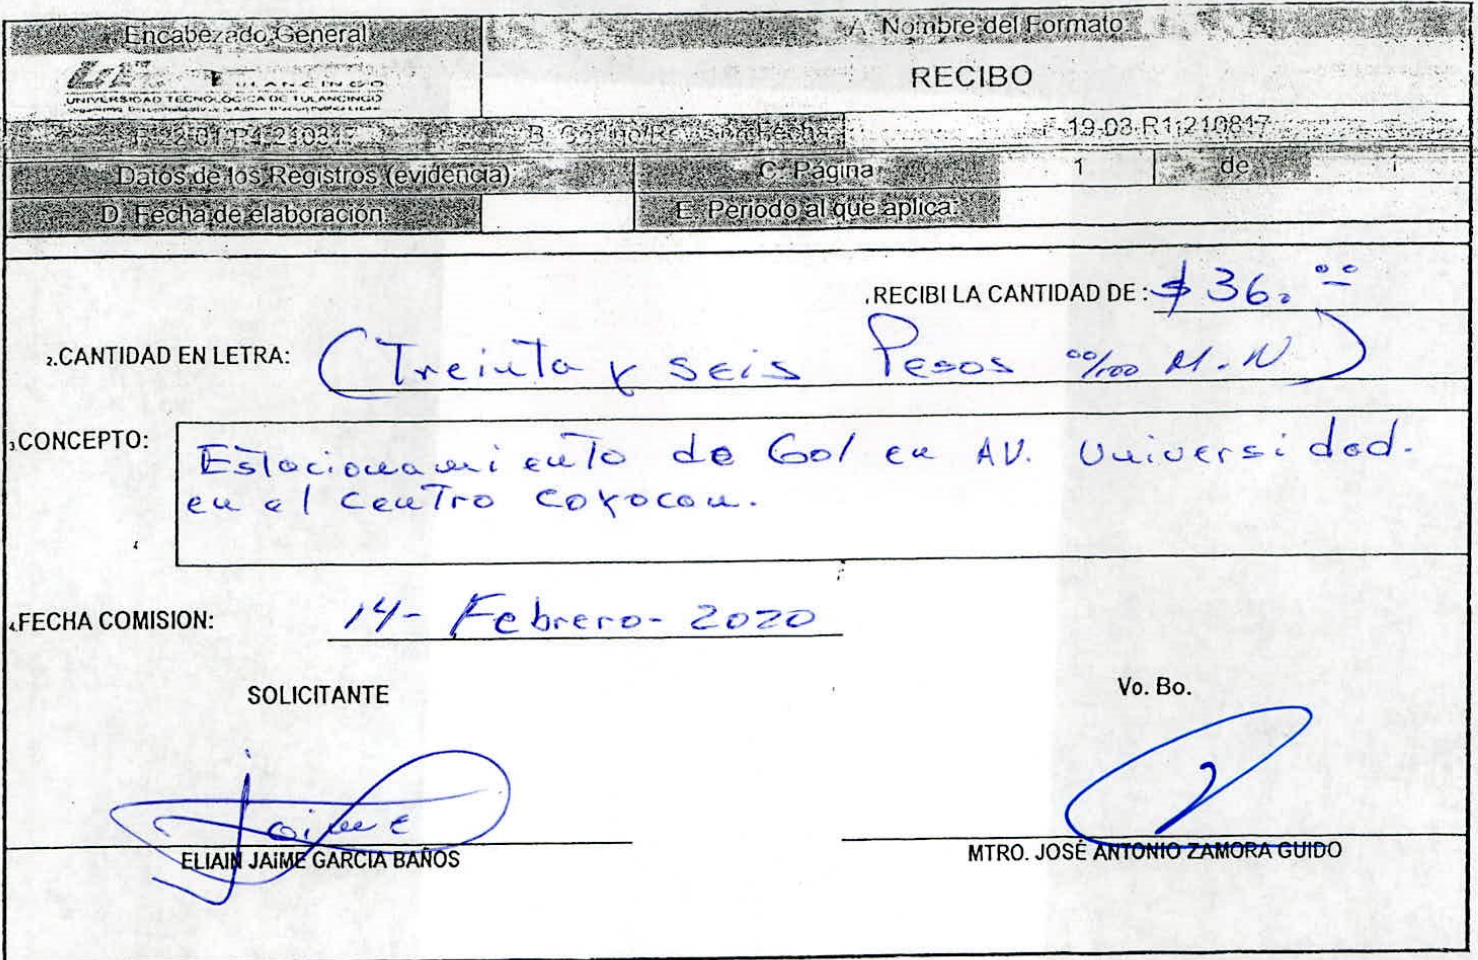 Encabezado General
A. Nombre del Formato
UNIVERSIDAD TECNOLÓGICA DE TULANCINGO
RECIBO
F-22-01-R4-210817
B. Código/Revisión/Fecha:
F-19-03-R1-210817
Datos de los Registros (evidencia):
C. Página
1 de 1
D. Fecha de elaboración:
E. Periodo al que aplica:
1.RECIBI LA CANTIDAD DE : $ 36.00
2.CANTIDAD EN LETRA: (Treinta y seis Pesos 00/100 M.N)
3.CONCEPTO: Estacionamiento de Gol en AV. Universidad.
en el Centro Coyocan.
4.FECHA COMISION: 14- Febrero- 2020
SOLICITANTE
Vo. Bo.
Jaime
ELIAIN JAIME GARCIA BAÑOS
MTRO. JOSÉ ANTONIO ZAMORA GUIDO